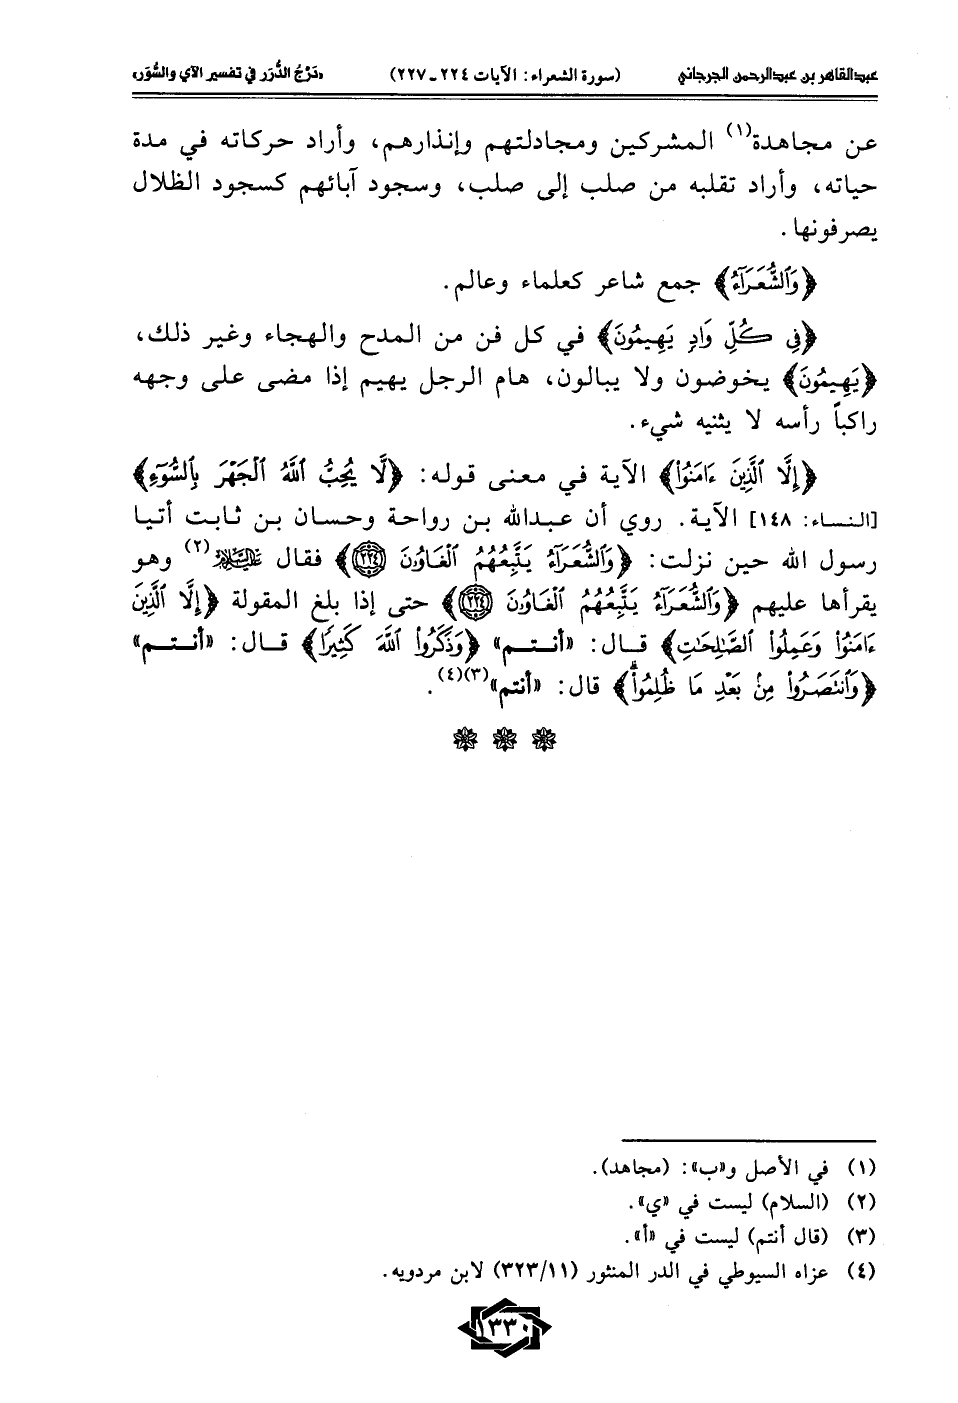 عبدالقاهر بن عبدالرحمن الجرجاني (سورة الشعراء: الآيات ٢٢٤-٢٢٧) «دَرْجُ الدُّرَر في تفسير الآي والسُّوَر»
عن مجاهدة(١) المشركين ومجادلتهم وإنذارهم، وأراد حركاته في مدة
حياته، وأراد تقلبه من صلب إلى صلب، وسجود آبائهم كسجود الظلال
يصرفونها.
﴿وَٱلشُّعَرَآءُ﴾ جمع شاعر كعلماء وعالم.
﴿فِى كُلِّ وَادٍ يَهِيمُونَ﴾ في كل فن من المدح والهجاء وغير ذلك،
﴿يَهِيمُونَ﴾ يخوضون ولا يبالون، هام الرجل يهيم إذا مضى على وجهه
راكباً رأسه لا يثنيه شيء.
﴿إِلَّا ٱلَّذِينَ ءَامَنُوا۟﴾ الآية في معنى قوله: ﴿لَّا يُحِبُّ ٱللَّهُ ٱلْجَهْرَ بِٱلسُّوٓءِ﴾
[النساء: ١٤٨] الآية. روي أن عبدالله بن رواحة وحسان بن ثابت أتيا
رسول الله حين نزلت: ﴿وَٱلشُّعَرَآءُ يَتَّبِعُهُمُ ٱلْغَاوُۥنَ ٢٢٤﴾ فقال عليه السلام(٢) وهو
يقرأها عليهم ﴿وَٱلشُّعَرَآءُ يَتَّبِعُهُمُ ٱلْغَاوُۥنَ ٢٢٤﴾ حتى إذا بلغ المقولة ﴿إِلَّا ٱلَّذِينَ
ءَامَنُوا۟ وَعَمِلُوا۟ ٱلصَّٰلِحَٰتِ﴾ قال: «أنتم» ﴿وَذَكَرُوا۟ ٱللَّهَ كَثِيرًا﴾ قال: «أنتم»
﴿وَٱنتَصَرُوا۟ مِنۢ بَعْدِ مَا ظُلِمُوا۟﴾ قال: «أنتم»(٣)(٤).
(١) في الأصل و«ب»: (مجاهد).
(٢) (السلام) ليست في «ي».
(٣) (قال أنتم) ليست في «أ».
(٤) عزاه السيوطي في الدر المنثور (٣٢٣/١١) لابن مردويه.
١٣٣٠